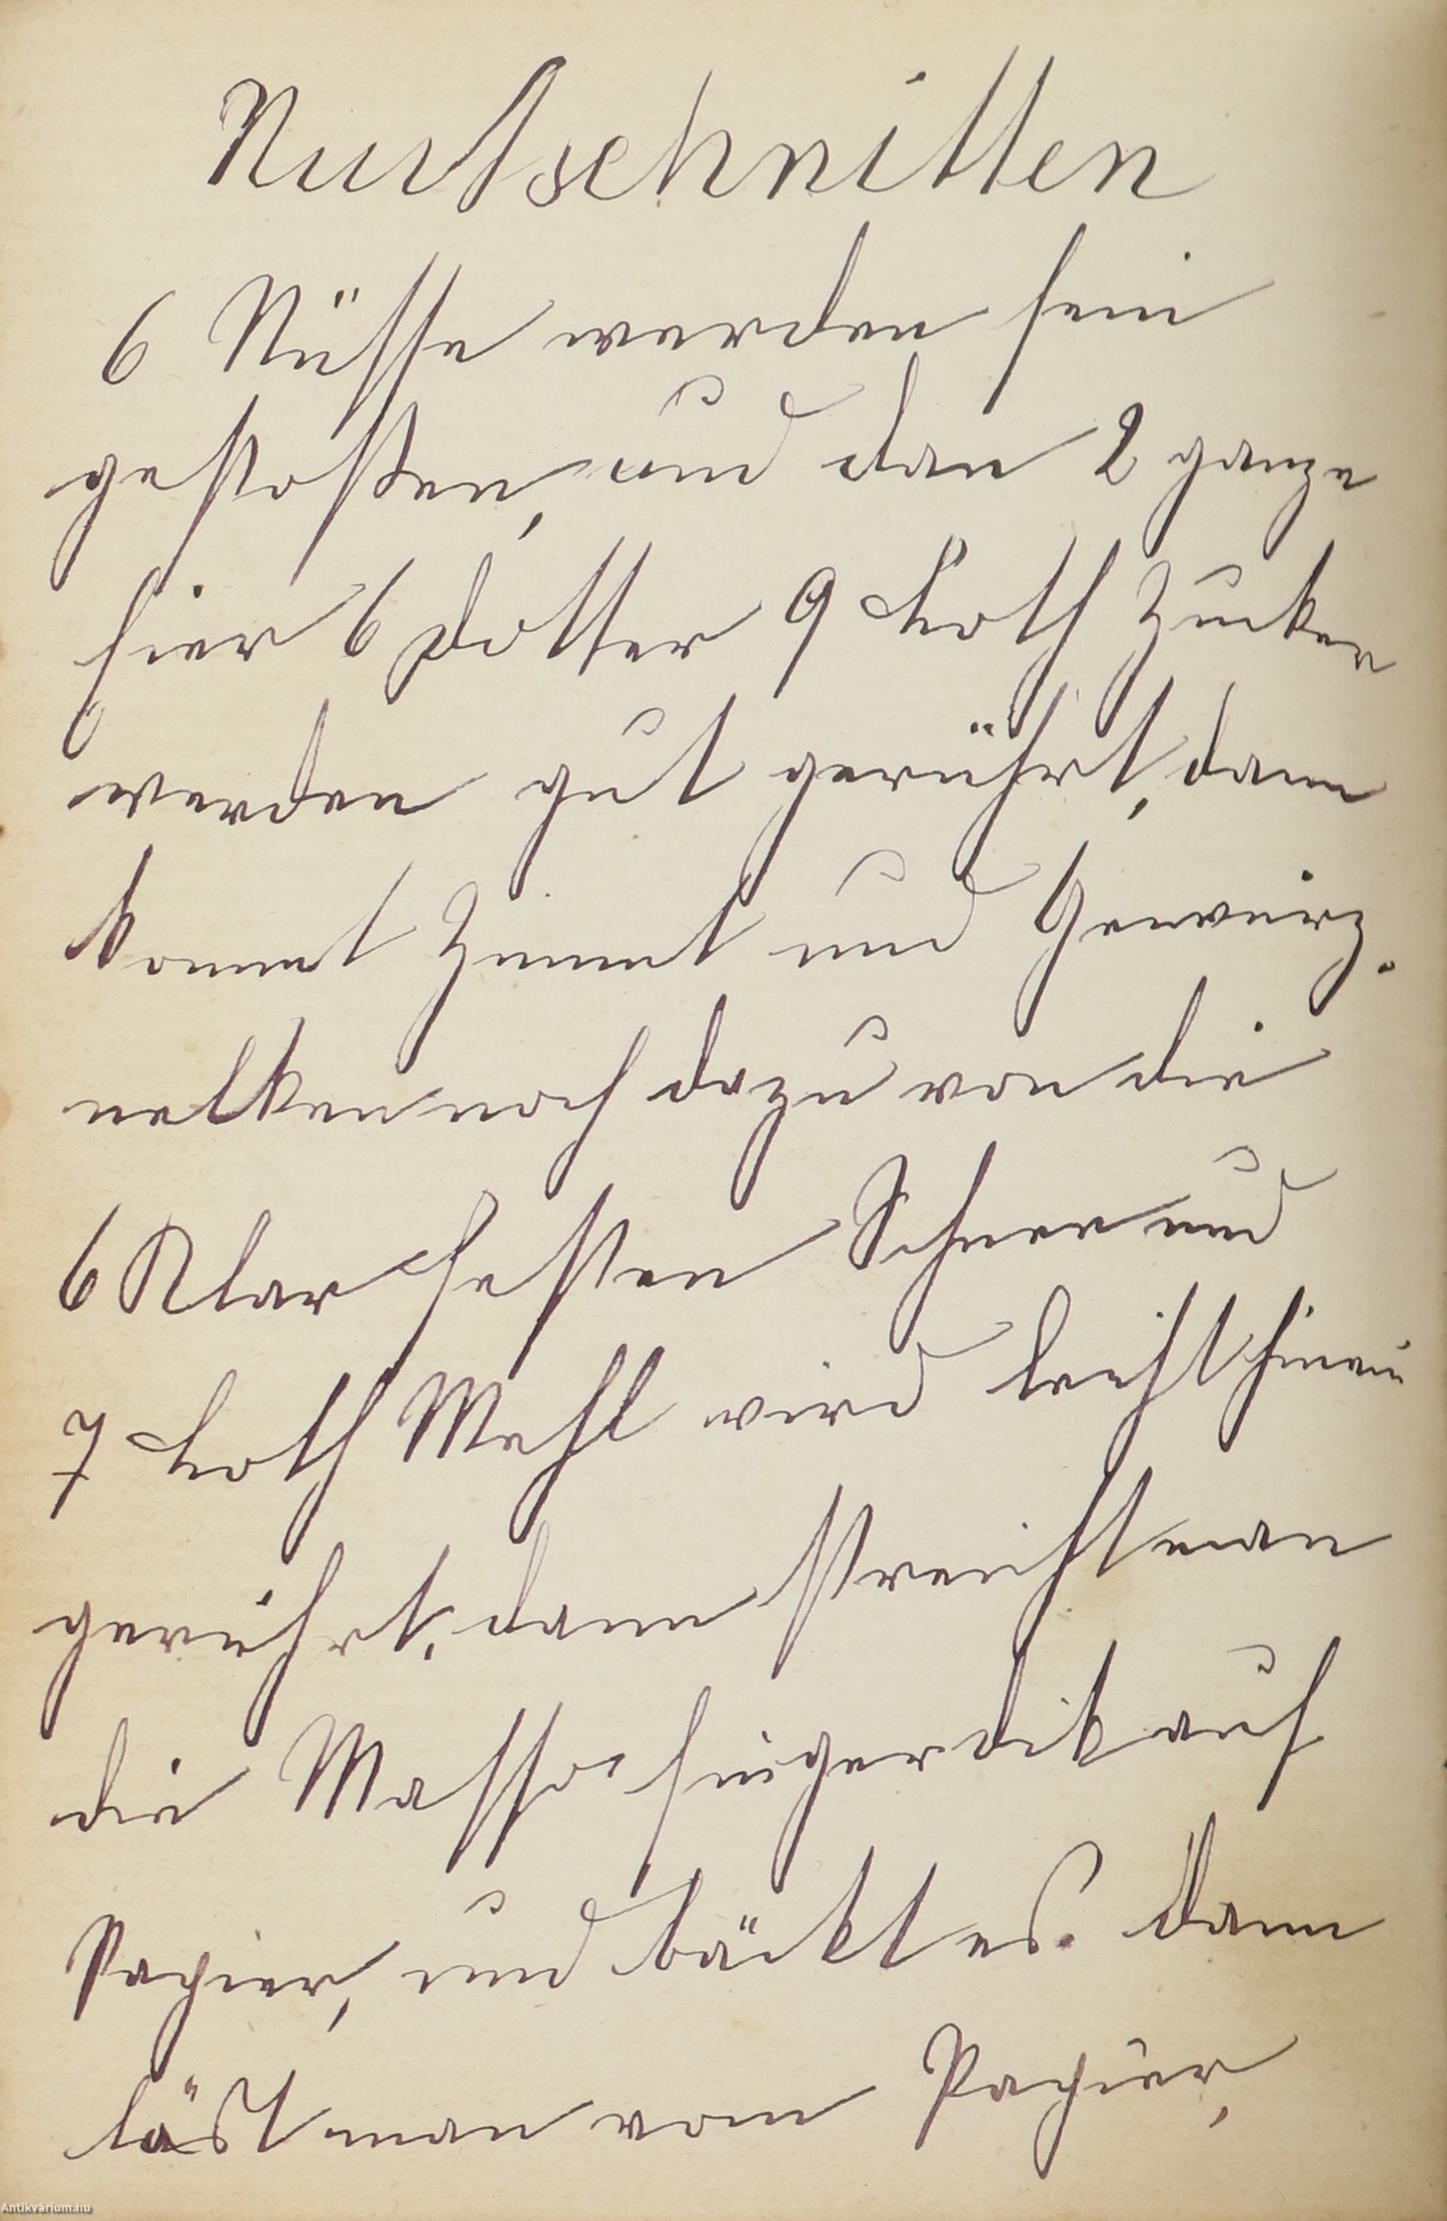 Nußschnitten
6 Nüsse werden fein
gestoßen, und dan 2 ganze
Eier 6 Dotter 9 Loth Zucker
werden gut gerührt, dann
kommt Zimmt und Gewürz-
nelken noch dazu von die
6 Klar festen Schnee und
7 Loth Mehl wird leicht hinein
gerührt, dann streicht man
die Masse fingerdik auf
Papier, und bäckt es. dann
löst man vom Papier,
Antikvárium.hu